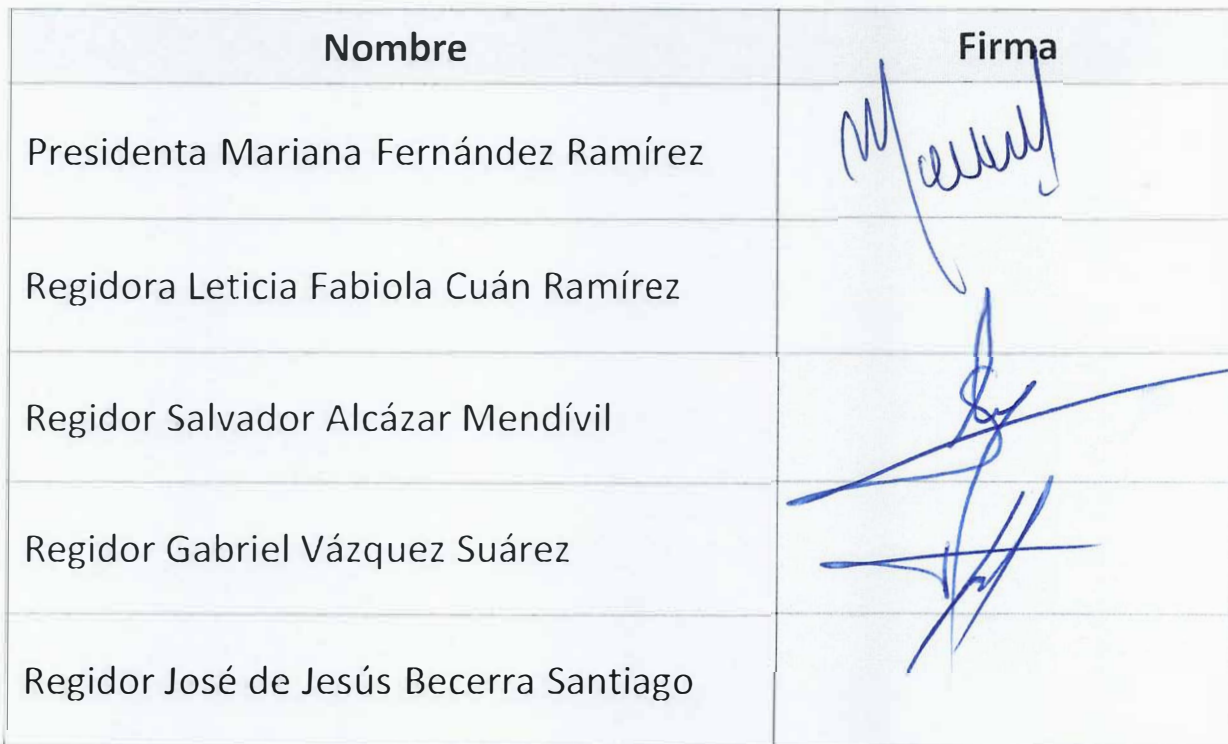 Nombre Firma
Presidenta Mariana Fernández Ramírez
Regidora Leticia Fabiola Cuán Ramírez
Regidor Salvador Alcázar Mendívil
Regidor Gabriel Vázquez Suárez
Regidor José de Jesús Becerra Santiago